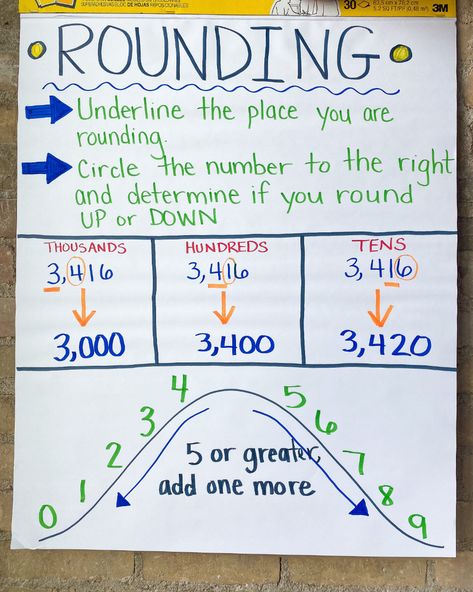 30
63.5 cm x 76.2 cm
5.2 SQ FT/PI² (0.48 m²)
3M
ROUNDING
Underline the place you are
rounding.
Circle the number to the right
and determine if you round
UP or DOWN
THOUSANDS HUNDREDS TENS
3,416 3,416 3,416
3,000 3,400 3,420
4 5
3 6
2 7
1 8
0 9
5 or greater,
add one more